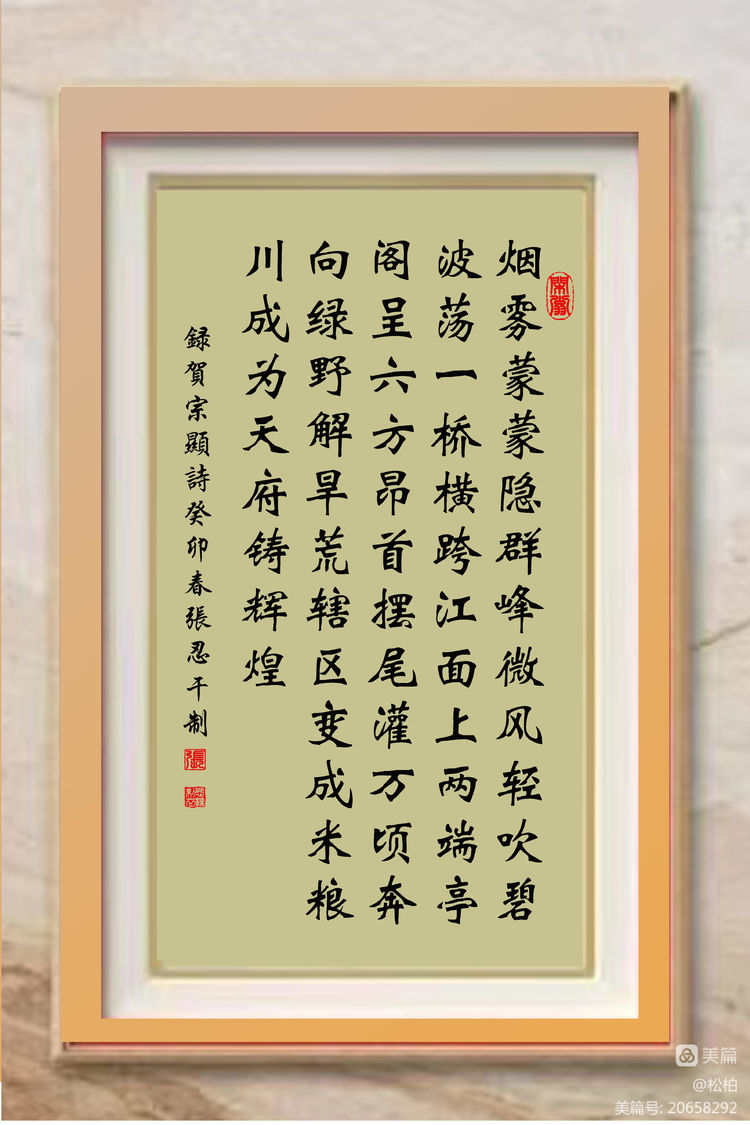 烟雾蒙蒙隐群峰微风轻吹碧
波荡一桥横跨江面上两端亭
阁呈六方昂首摆尾灌万顷奔
向绿野解旱荒辖区变成米粮
川成为天府铸辉煌
録賀宗顯詩癸卯春張忍干制
張
美篇
@松柏
美篇号: 20658292